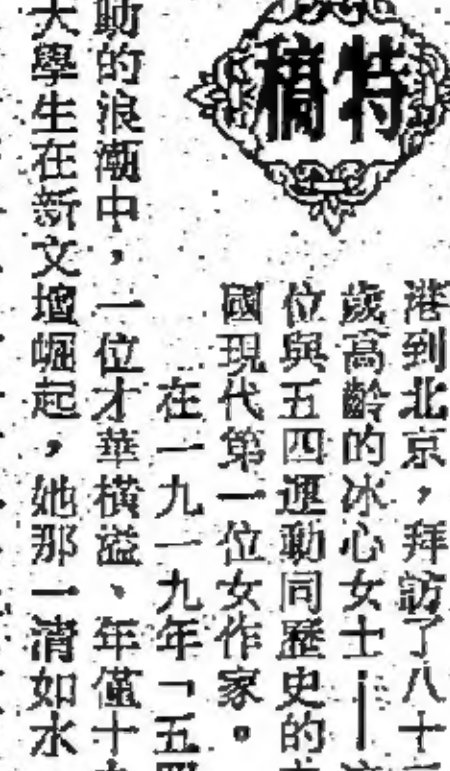 特稿
港到北京，拜訪了八十
歲高齡的冰心女士——
位與五四運動同歷史的
國現代第一位女作家。
在一九一九年「五四
動的浪潮中，一位才華橫溢、年僅十
大學生在新文壇崛起，她那一清如水